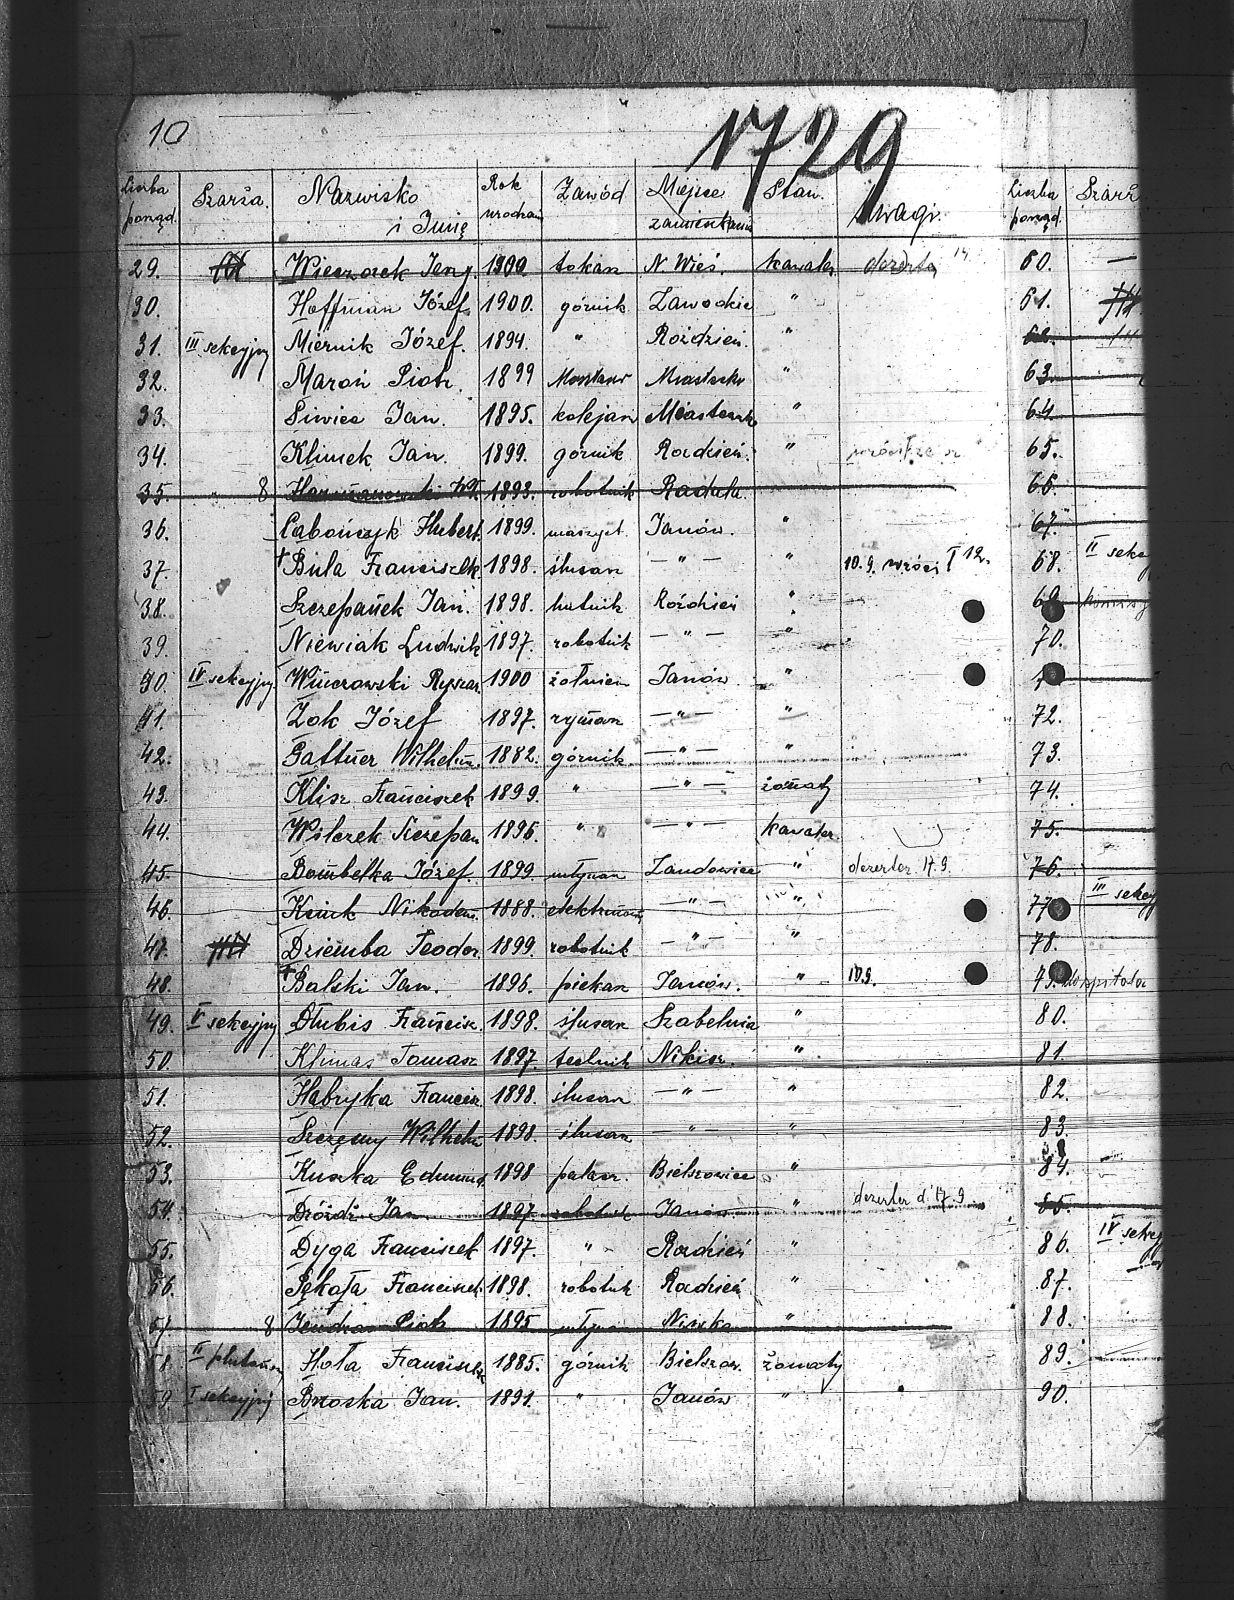 10
1729
Liczba porząd. Szarża. Nazwisko i Imię Rok urodzen Zawód Miejsce zamieszkania Stan. Uwagi. Liczba porząd. Szarż
29. Wieczorek Jerzy. 1900 tokarz N. Wieś. kawaler dezerter 14 60. —
30. Hoffman Józef. 1900. górnik Zawodzie " 61.
31. III sekcyjny Miernik Józef. 1894. " Roździeń. " 62.
32. Maroń Piotr. 1899 Monter " 63.
33. Siwiec Jan. 1895. kolejarz " 64
34. Klimek Jan. 1899. górnik Rozdzień. " 65.
35. " 8 1893. robotnik Radula 66.
36. Labończyk Hubert. 1899. maszyst. Janów. " 67.
37. † Bula Franciszek. 1898. ślusarz — " — " 10.9. wrócił I 12. 68. II sekcy
38. Szczepanek Jan. 1898. hutnik Roździeń " 69.
39. Niewiak Ludwik 1897. robotnik — " — " 70.
40. IV sekcyjny. Winczowski Ryszar. 1900 żołnierz Janów "
41. Zok Józef 1897. rymarz — " — " 72.
42. Gattner Wilhelm. 1882. górnik. — " — " 73.
43. Klisz Franciszek 1899. " — " — żonaty 74.
44. Wilczek Szczepan 1896. " — " — kawaler. 75.
45. Bombelka Józef. 1899 młynarz Zandowice " dezerter 17.9. 76.
46. Nikodem. 1888. — " — " 77 III sekcy
47. Dziemba Teodor. 1899. robotnik — " — " 78.
48. † Balski Jan. 1896. piekarz Janów. " 10.9. 79.
49. V sekcyjny Dłubis Francisz. 1898. ślusarz Szabelnia " 80.
50. Klimas Tomasz 1897. technik Nikisz. " 81.
51. Habryka Francisz. 1898. ślusarz — " — " 82.
52. Szczęsny Wilhelm 1898. ślusarz — " — " 83.
53. Kuska Edmund. 1898 palacz. Bielszowice " 84.
54. Dróżdż Jan. 1897. robotnik Janów. " dezerter d. 17.9. 85.
55. Dyga Franciszek 1897. " Rozdzień " 86. IV sekcy
56. Pękała Franciszek 1898. robotnik Rozdzień " 87.
57. 8 Piotr 1895 młynarz " 88.
58. II plutonow Hola Franciszek 1885. górnik Bielszow. żonaty 89.
59. I sekcyjny Brzoska Jan. 1891. " Janów " 90.